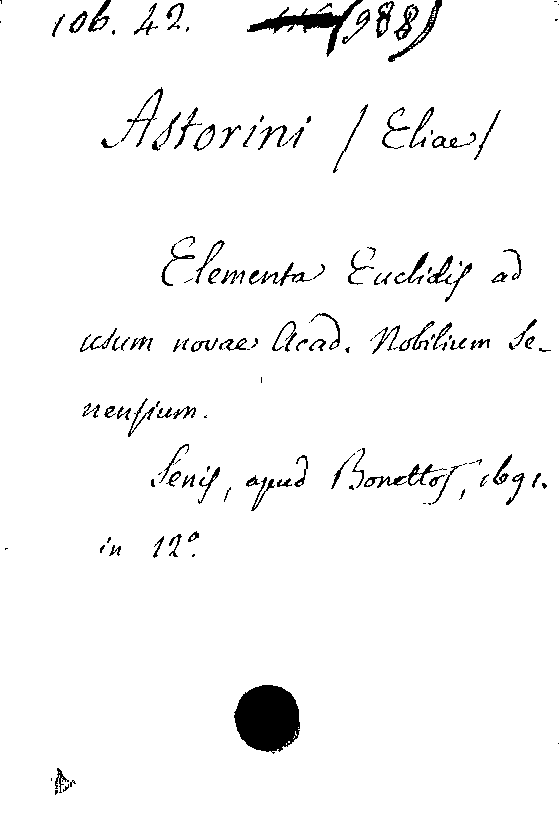 106. 42. (988)
Astorini / Eliae /
Elementa Euclidis ad
usum novae Acad. Nobilium Se-
nensium.
Senis, apud Bonettos, 1691.
in 12º.